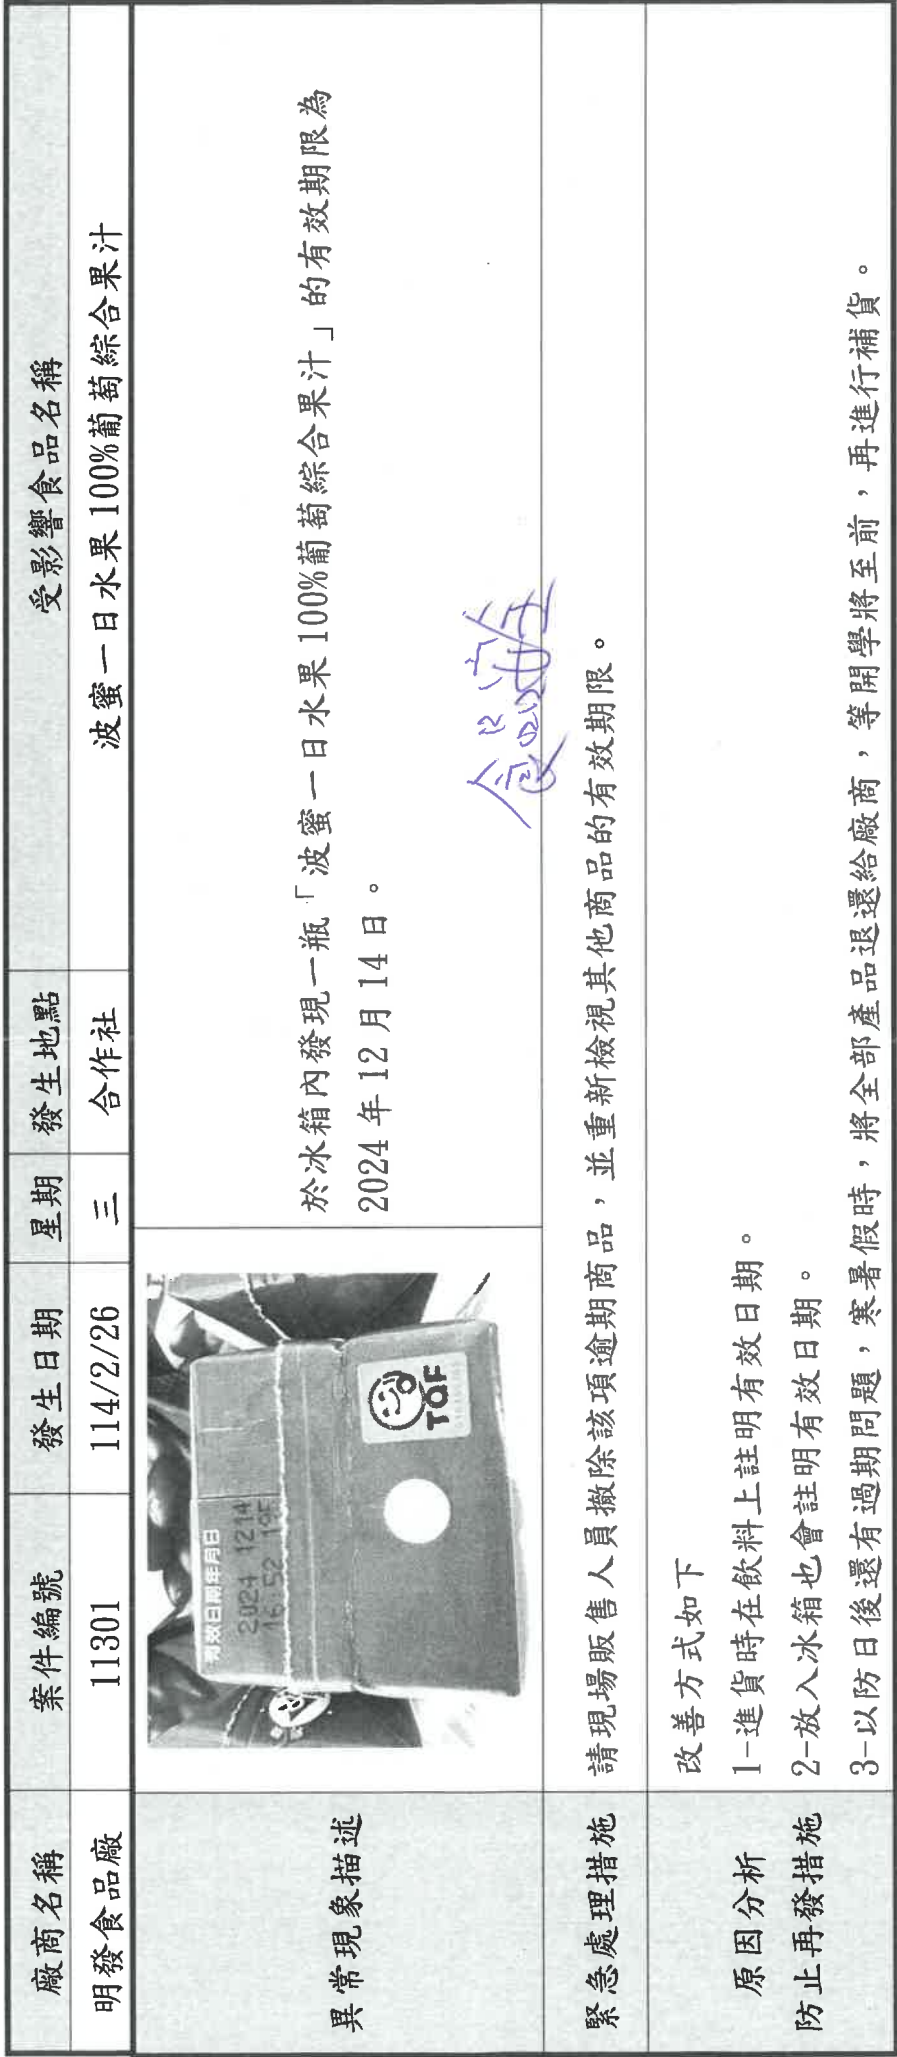 廠商名稱 案件編號 發生日期 星期 發生地點 受影響食品名稱
明發食品廠 11301 114/2/26 三 合作社 波蜜一日水果100%葡萄綜合果汁
異常現象描述
有效日期年月日
2024 1214
16:52 19F
TQF
於冰箱內發現一瓶「波蜜一日水果100%葡萄綜合果汁」的有效期限為
2024年12月14日。
緊急處理措施
請現場販售人員撤除該項逾期商品，並重新檢視其他商品的有效期限。
原因分析
防止再發措施
改善方式如下
1-進貨時在飲料上註明有效日期。
2-放入冰箱也會註明有效日期。
3-以防日後還有過期問題，寒暑假時，將全部產品退還給廠商，等開學將至前，再進行補貨。